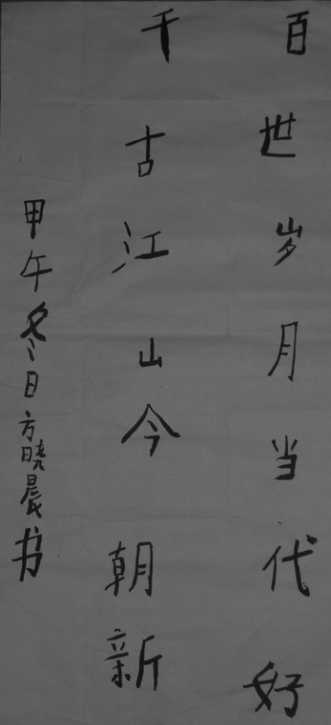 百世岁月当代好
千古江山今朝新
甲午冬日方晓晨书